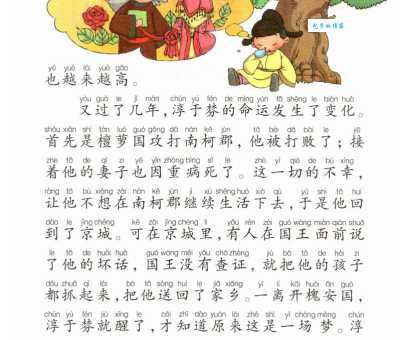 yě yuè lái yuè gāo
也越来越高。
yòu guò le jǐ nián chún yú fén de mìng yùn fā shēng le biàn huà
又过了几年，淳于棼的命运发生了变化。
shǒu xiān shì tán luó guó gōng dǎ nán kē jùn tā bèi dǎ bài le jiē
首先是檀萝国攻打南柯郡，他被打败了；接
zhe tā de qī zi yě yīn zhòng bìng sǐ le zhè yí qiè de bú xìng
着他的妻子也因重病死了。这一切的不幸，
ràng tā bù xiǎng zài nán kē jùn jì xù shēng huó xià qù yú shì tā huí
让他不想在南柯郡继续生活下去，于是他回
dào le jīng chéng kě zài jīng chéng lǐ yǒu rén zài guó wáng miàn qián shuō
到了京城。可在京城里，有人在国王面前说
le tā de huài huà guó wáng méi yǒu chá zhèng jiù bǎ tā de hái zi
了他的坏话，国王没有查证，就把他的孩子
dōu zhuā qǐ lái bǎ tā sòng huí le jiā xiāng yì lí kāi huái ān guó
都抓起来，把他送回了家乡。一离开槐安国，
chún yú fén jiù xǐng le cái zhī dào yuán lái zhè shì yì chǎng mèng chún
淳于棼就醒了，才知道原来这是一场梦。淳